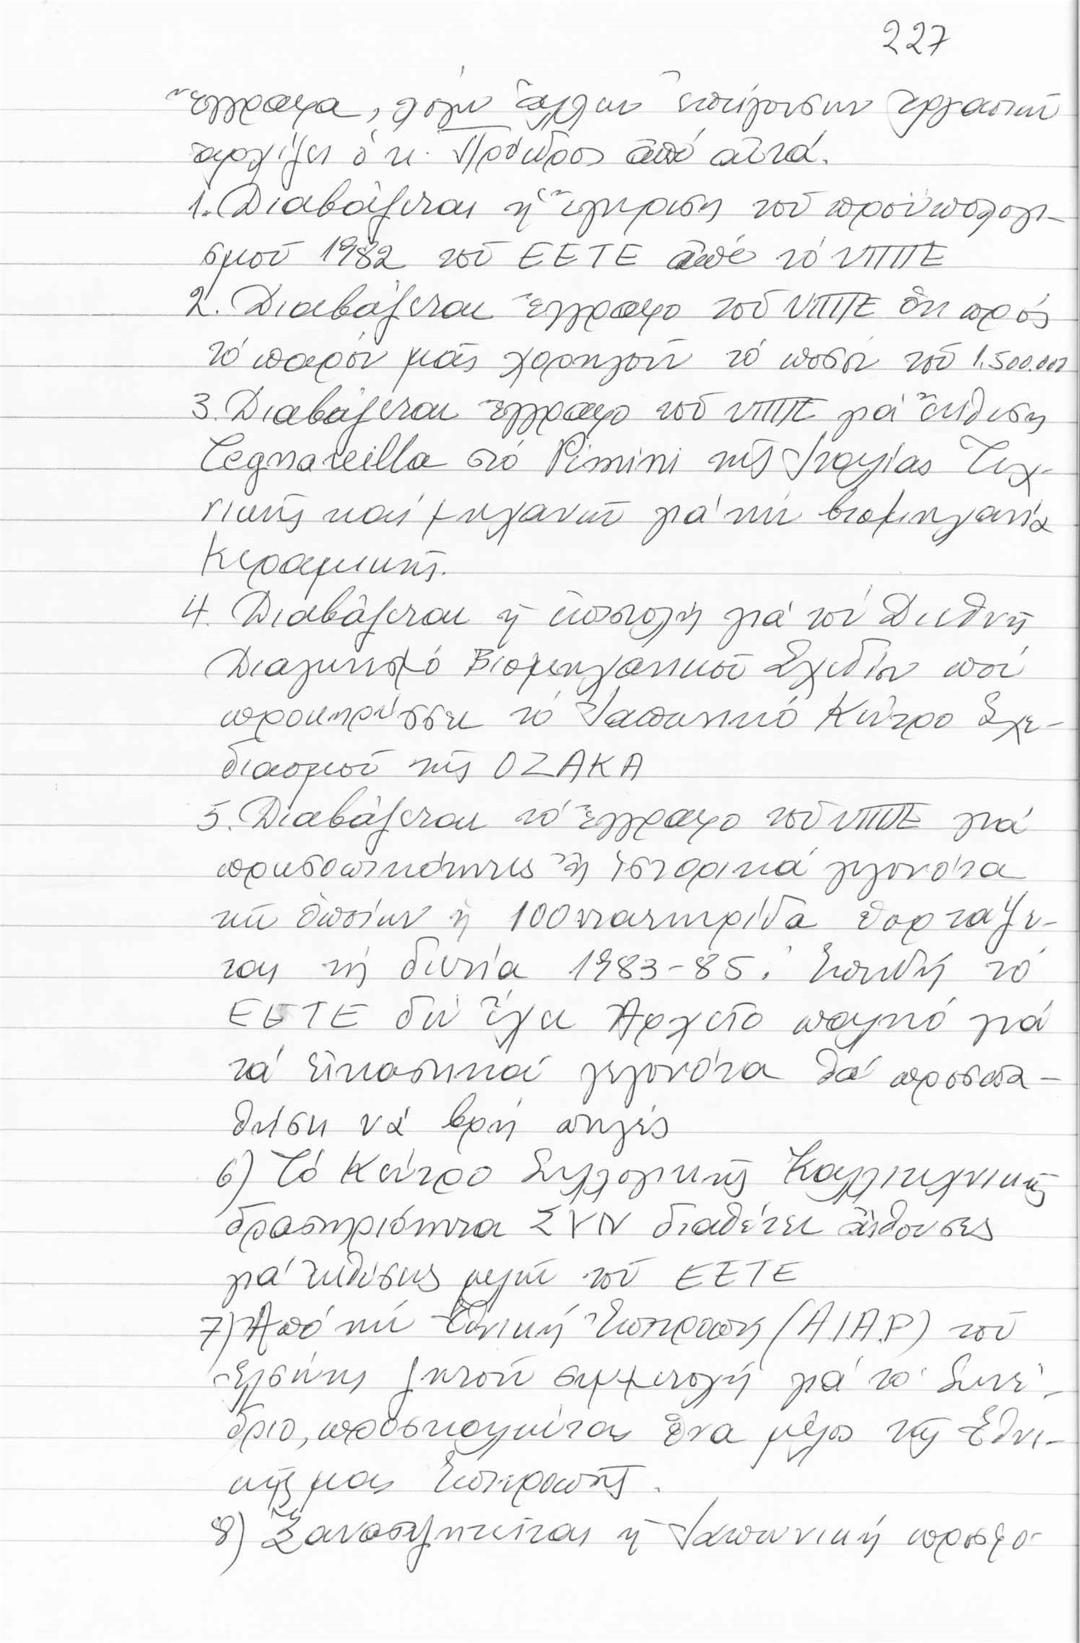 227
ἔγγραφα, λόγω ἄλλων ἐπειγουσῶν ἐργασιῶν
ἀρχίζει ὁ κ. Πρόεδρος ἀπό αὐτά.
1. Διαβάζεται ἡ ἔγκριση τοῦ προϋπολογι-
σμοῦ 1982 τοῦ ΕΕΤΕ ἀπό τό ΥΠΠΕ
2. Διαβάζεται ἔγγραφο τοῦ ΥΠΠΕ ὅτι πρός
τό παρόν μᾶς χορηγοῦν τό ποσόν τοῦ 1.500.000
3. Διαβάζεται ἔγγραφο τοῦ ΥΠΠΕ γιά ἔκθεση
στό Rimini τῆς Ἰταλίας Τεχ-
νικῆς καί μηχανῶν γιά τήν βιομηχανία
Κεραμικῆς.
4. Διαβάζεται ἡ ἐπιστολή γιά τόν Διεθνῆ
Διαγωνισμό Βιομηχανικοῦ Σχεδίου πού
προκηρύσσει τό Ἰαπωνικό Κέντρο Σχε-
διασμοῦ τῆς ΟΖΑΚΑ
5. Διαβάζεται τό ἔγγραφο τοῦ ΥΠΠΕ γιά
προσωπικότητες ἤ ἱστορικά γεγονότα
τῶν ὁποίων ἡ 100νταετηρίδα ἑορτάζε-
ται τή διετία 1983-85. Ἐπειδή τό
ΕΕΤΕ δέν ἔχει Ἀρχεῖο παλιό γιά
τά εἰκαστικά γεγονότα θά προσπα-
θήσει νά βρῆ πηγές
6) Τό Κέντρο Συλλογικῆς Καλλιτεχνικῆς
δραστηριότητα ΣΥΝ διαθέτει αἴθουσες
γιά ἐκθέσεις μελῶν τοῦ ΕΕΤΕ
7) Ἀπό τήν Ἐθνική Ἐπιτροπή (A.I.A.P.) τοῦ
Ἑλσίνκι ζητοῦν συμμετοχή γιά τό Συνέ-
δριο, προσκαλεῖται ἕνα μέλος τῆς Ἐθνι-
κῆς μας Ἐπιτροπῆς.
8) Ξανασυζητεῖται ἡ Ἰαπωνική προσφο-